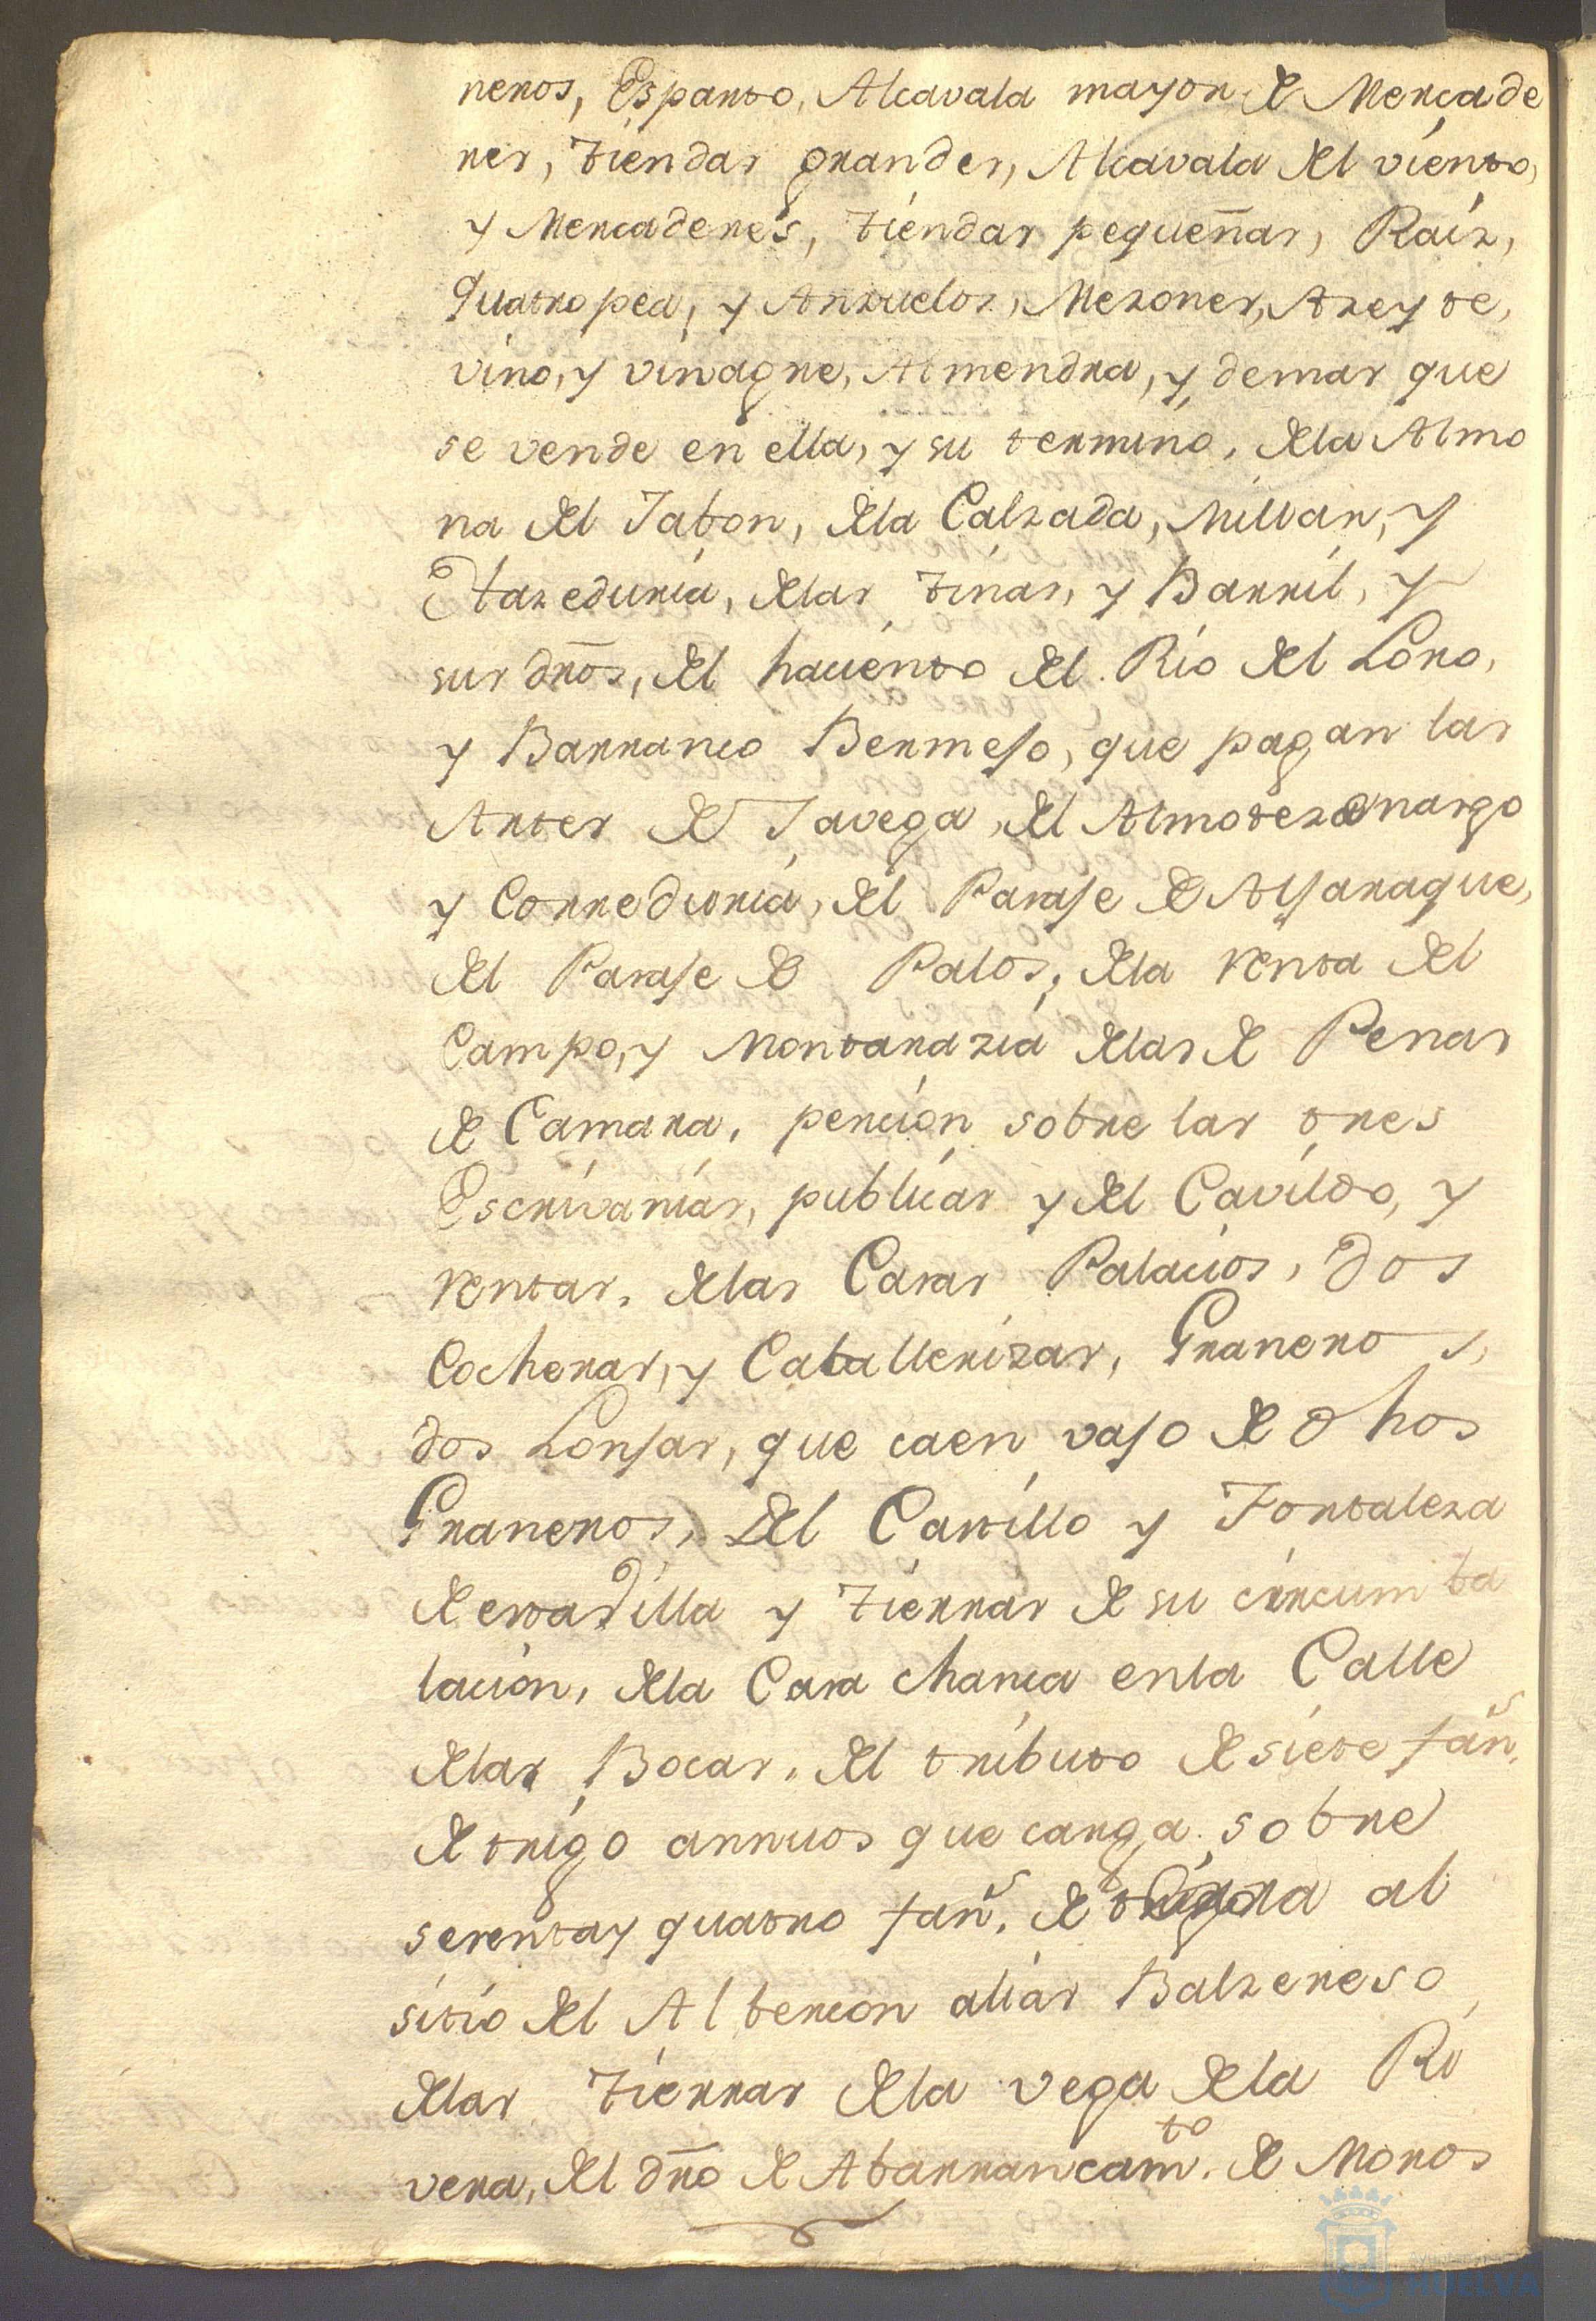 neros, Esparto, Alcavala mayor de Mercade
res, tiendas grandes, Alcavala del viento,
y Mercaderes, tiendas pequeñas, Raiz,
Quatropea, y Anzuelos, Mezones, Azeyte,
vino, y vinagre, Almendra, y demas que
se vende en ella, y su termino, dela Almo
na del Jabon, dela Calzada, Millar, y
Hazeduria, delas tinas, y Barril, y
sus dr̃os, del haciento del Rio del Loro,
y Barranco Bermejo, que pagan las
Artes de Javega, del Almotezenargo
y Correduria, del Pasaje de Aljaraque,
del Pasaje de Palos, dela renta del
Campo, y Montarazia delas de Penas
de Camara, pencion sobre las tres
Escrivanias, publicas y del Cavildo, y
rentas, delas Casas Palacios, dos
Cocheras, y Caballerizas, Graneros,
dos Lonjas, que caen vajo de dhos
Graneros, del Castillo y Fortaleza
de estadilla y tierras de su circumba
lacion, dela Casa chanca enla Calle
delas Bocas, del tributo de siete fañ.s
de trigo annuos que carga sobre
sesenta y quatro fañ.s de al
sitio del Albercon alias Balzeneso,
delas tierras dela vega dela Ri
vera, del dr̃o de Abarrancam.to de Moros
AYUNTAMIENTO DE
HUELVA